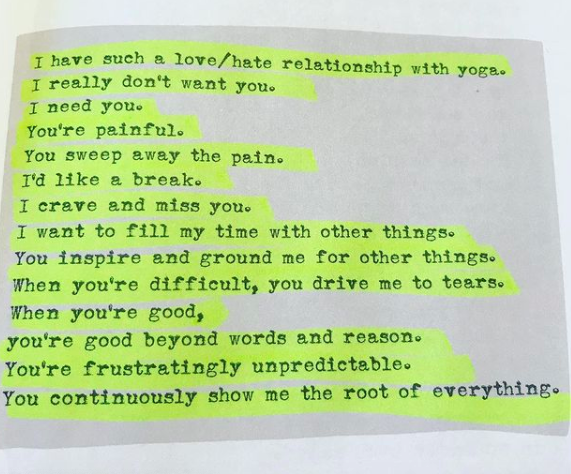 I have such a love/hate relationship with yoga.
I really don't want you.
I need you.
You're painful.
You sweep away the pain.
I'd like a break.
I crave and miss you.
I want to fill my time with other things.
You inspire and ground me for other things.
When you're difficult, you drive me to tears.
When you're good,
you're good beyond words and reason.
You're frustratingly unpredictable.
You continuously show me the root of everything.